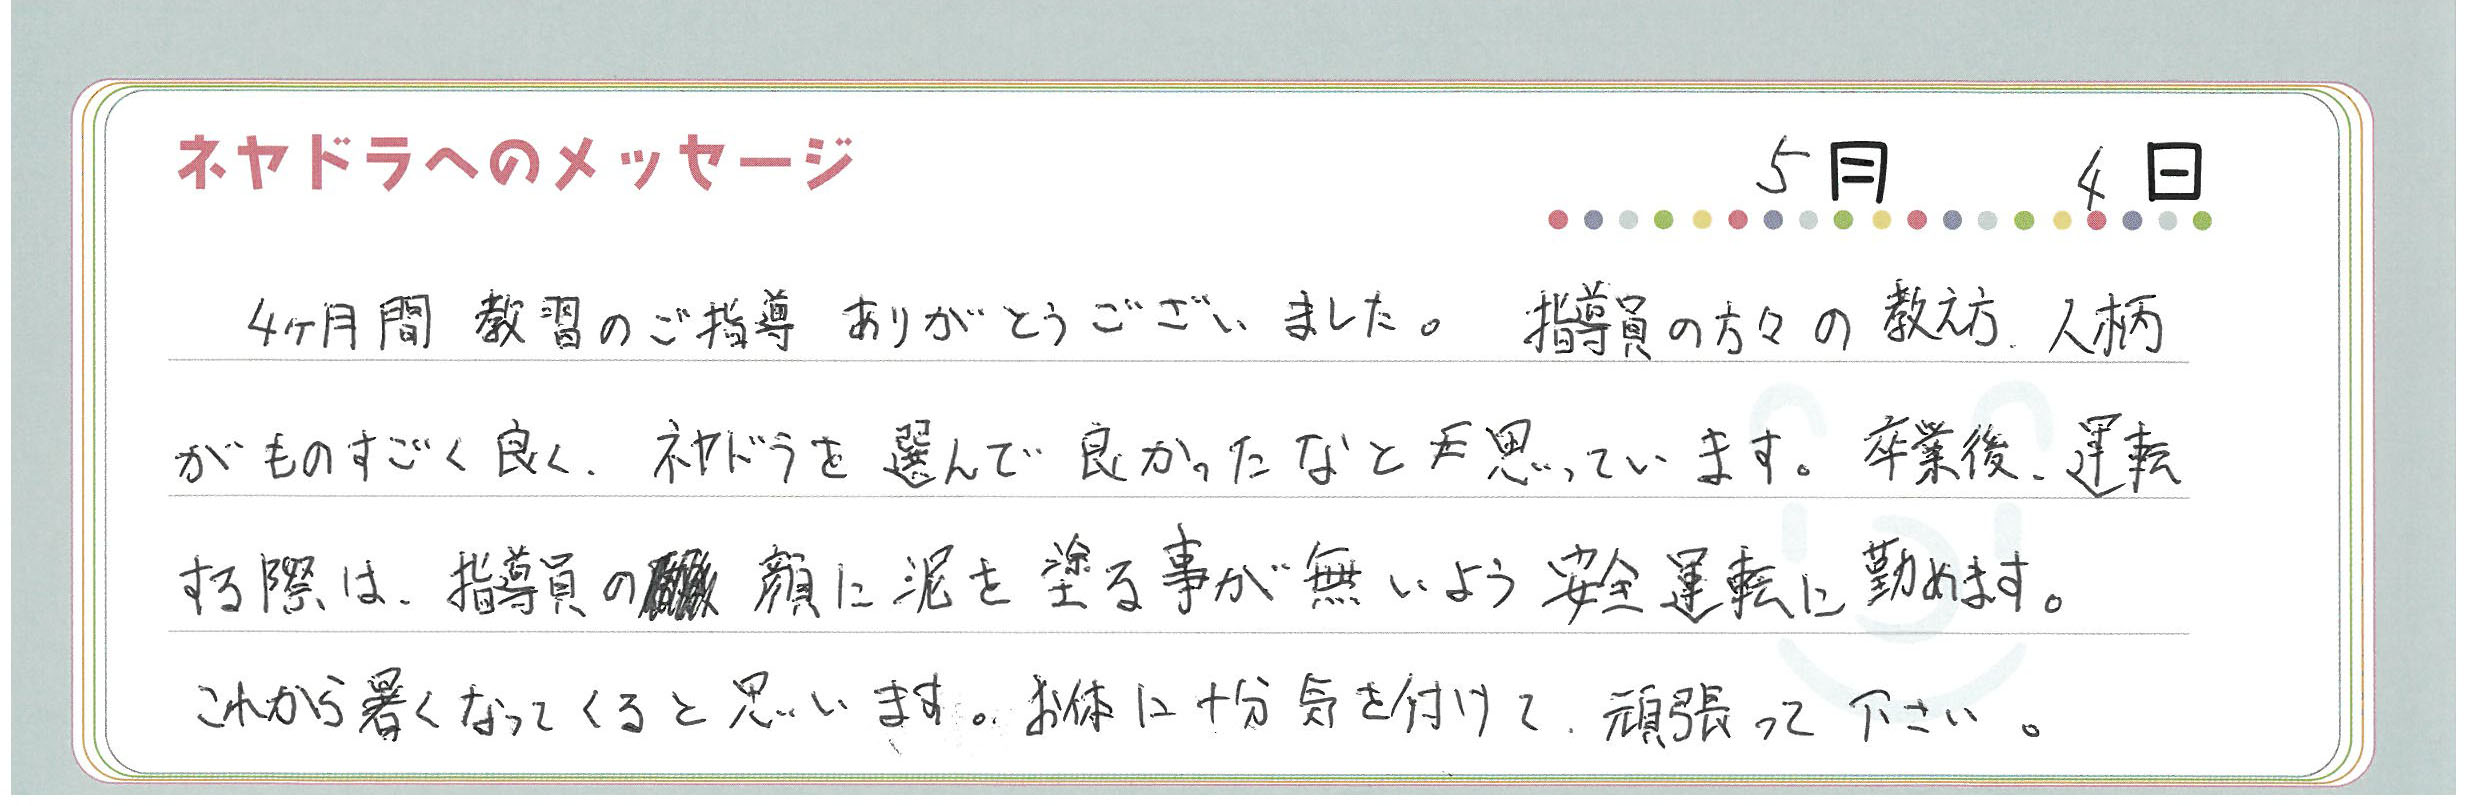 ネヤドラへのメッセージ
5月 4日
4ヶ月間 教習のご指導 ありがとうございました。 指導員の方々の教え方、人柄
がものすごく良く、ネヤドラを選んで良かったなと思っています。卒業後、運転
する際は、指導員の顔に泥を塗る事が無いよう安全運転に勤めます。
これから暑くなってくると思います。お体に十分気を付けて、頑張って下さい。